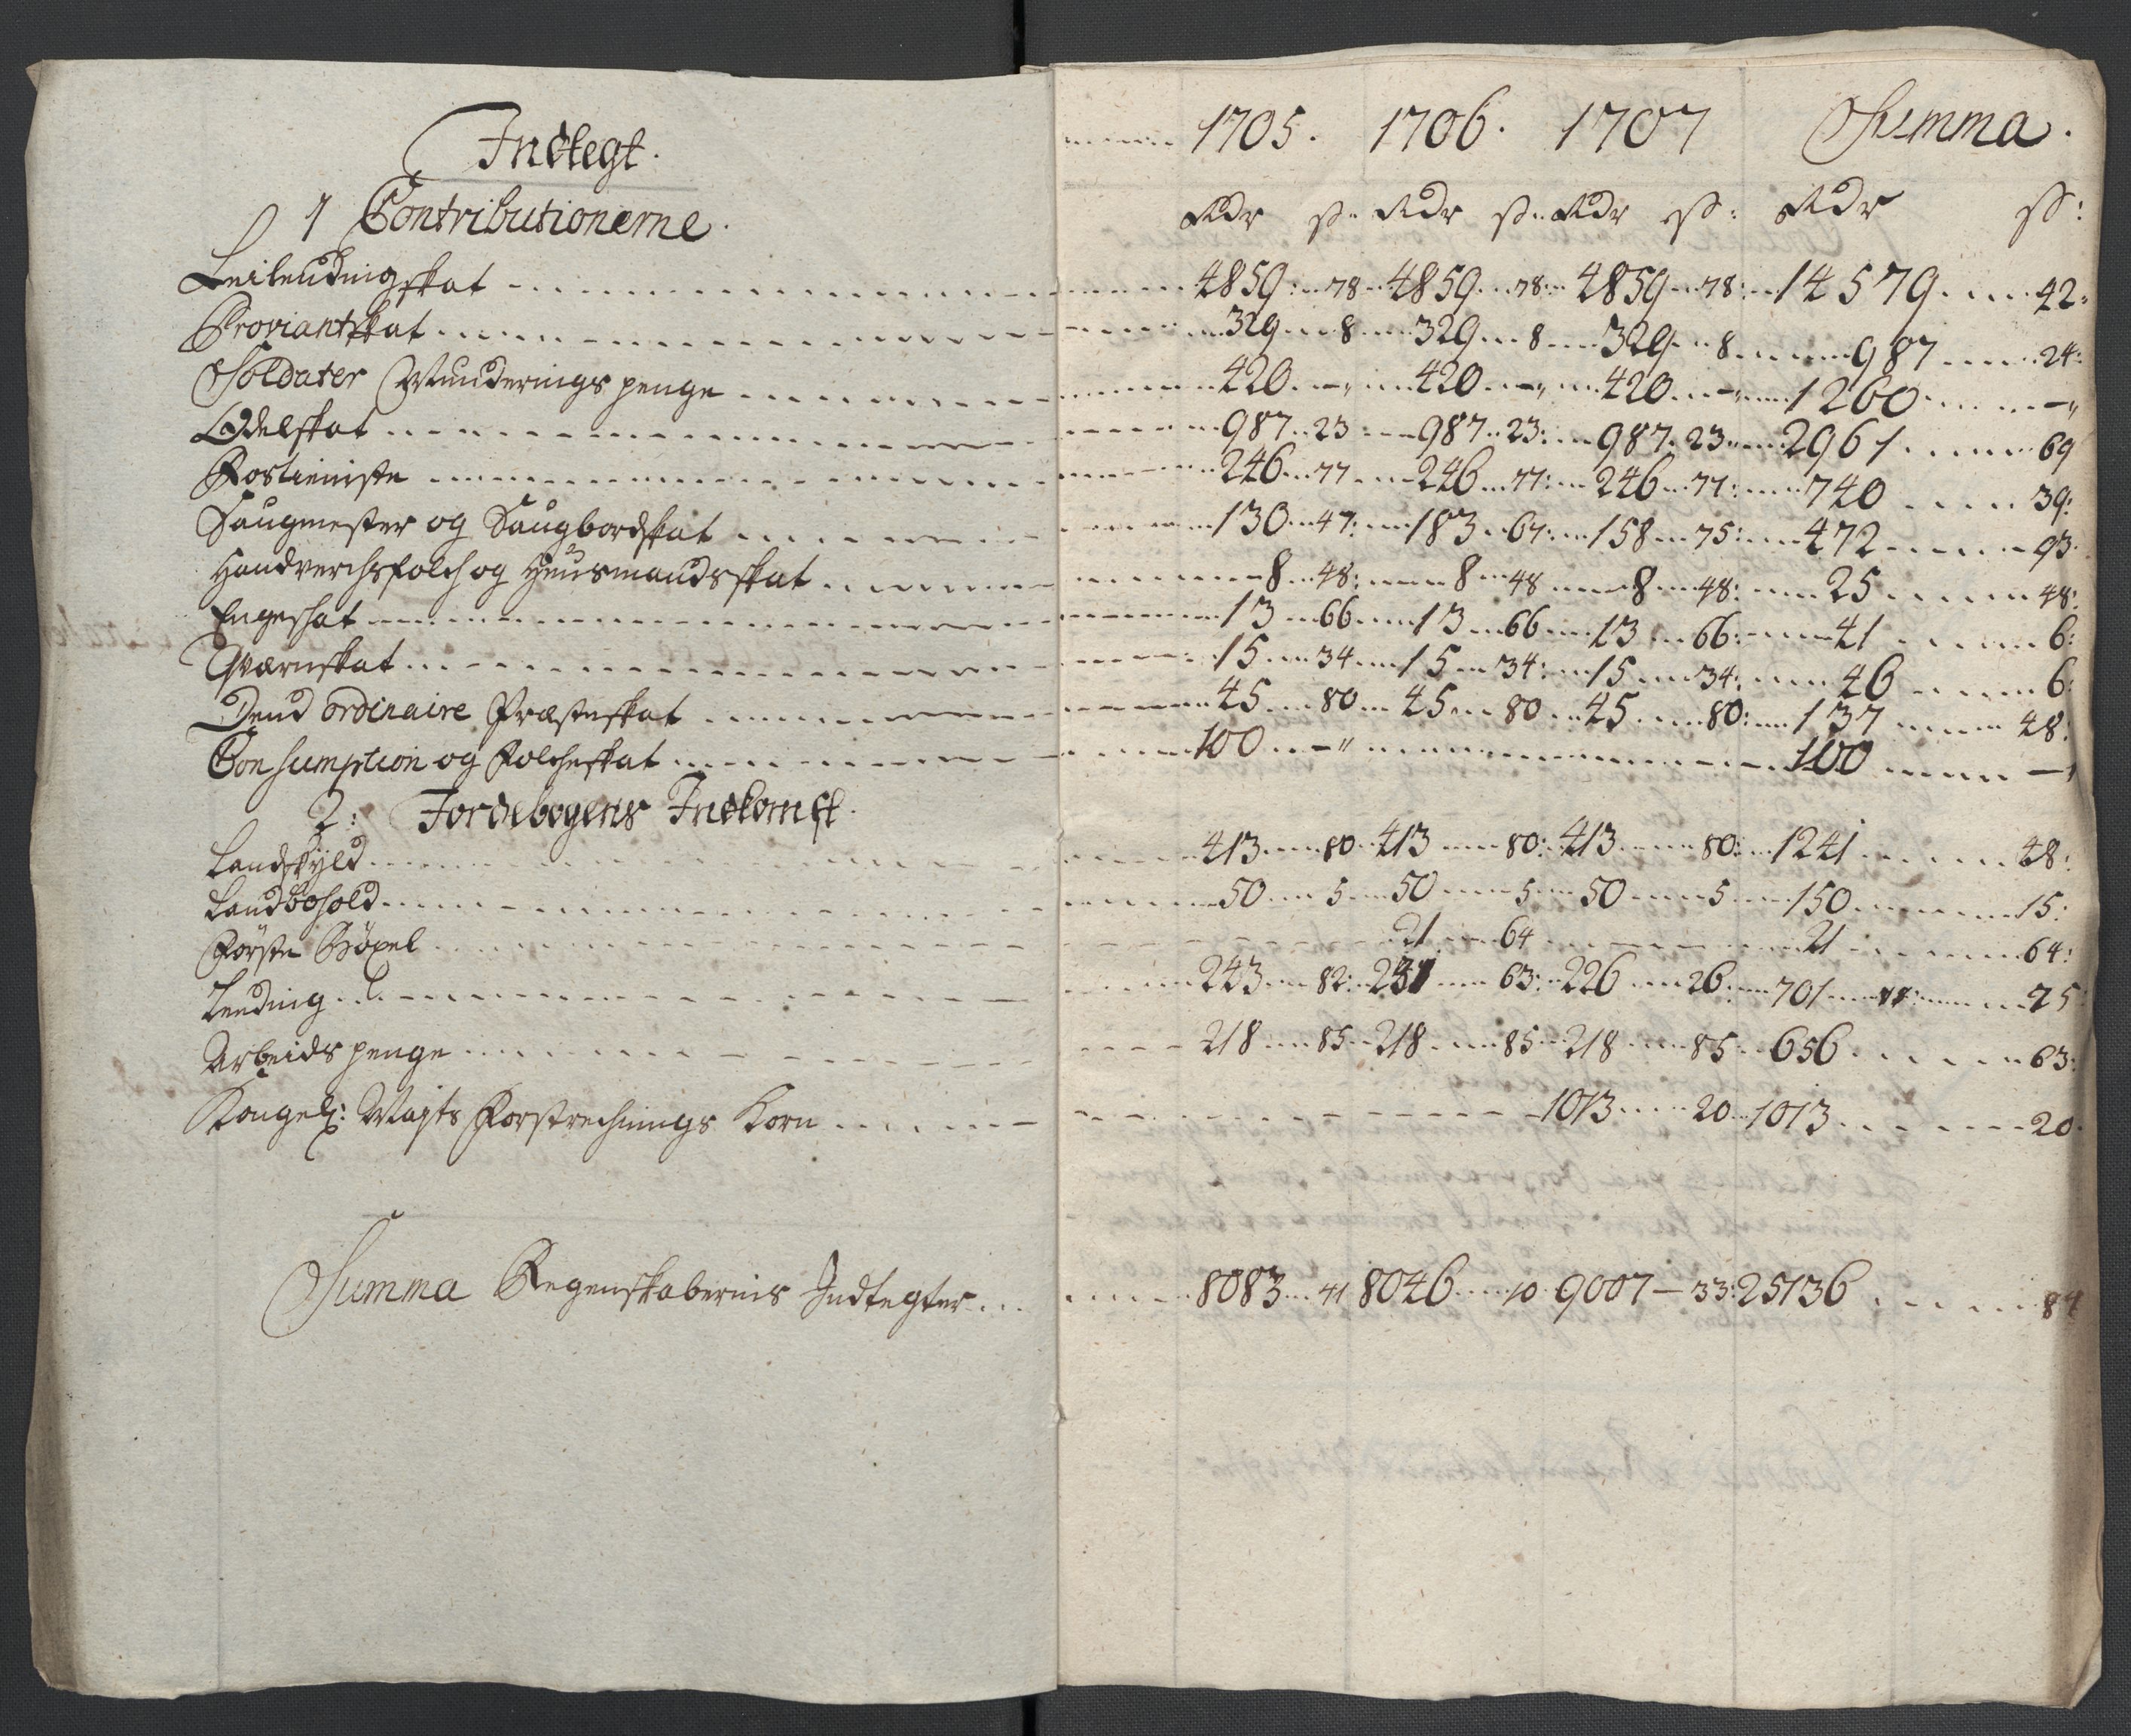 Indtegt. 1705. 1706. 1707 Summa.
1 Contributionerne. Rdr ß: Rdr ß: Rdr ß: Rdr ß:
Leilendingskat 4859: 78 4859 78: 4859 78: 14579 42:
Proviantskat 329 8 329 8 329 8 987 24:
Soldater Munderings penge 420 -" 420 -" 420 -" 1260 -"
Odelskat 987 23 987 23: 987 23 2961 69
Rostieniste 246 77 246 77: 246 77: 740 39:
Saugmester og Saugbordskat 130 47: 183 67: 158 75: 472 93
Handverchsfolch og Huusmandsskat 8 48: 8 48 8 48: 25 48:
Engeskat 13 66 13 66 13 66: 41 6:
Qværnskat 15 34 15 34: 15 34: 46 6:
Dend ordinaire Præsteskat 45 80 45 80 45 80: 137 48:
Consumption og Folcheskat 100 -" 100 -"
2: Jordebogens Indkomst.
Landskyld 413 80 413 80: 413 80: 1241 48:
Landbohold 50 5 50 5 50 5 150 15:
Förste Böxel 21 64 21 64:
Leuding 243 82: 231 63: 226 26: 701 75:
Arbeids penge 218 85 218 85 218 85 656 63:
Kongel: Mayts Forstrechnings Korn 1013 20 1013 20
Summa Regenskabernis Indtegter 8083 41 8046 10 9007 33: 25136 84